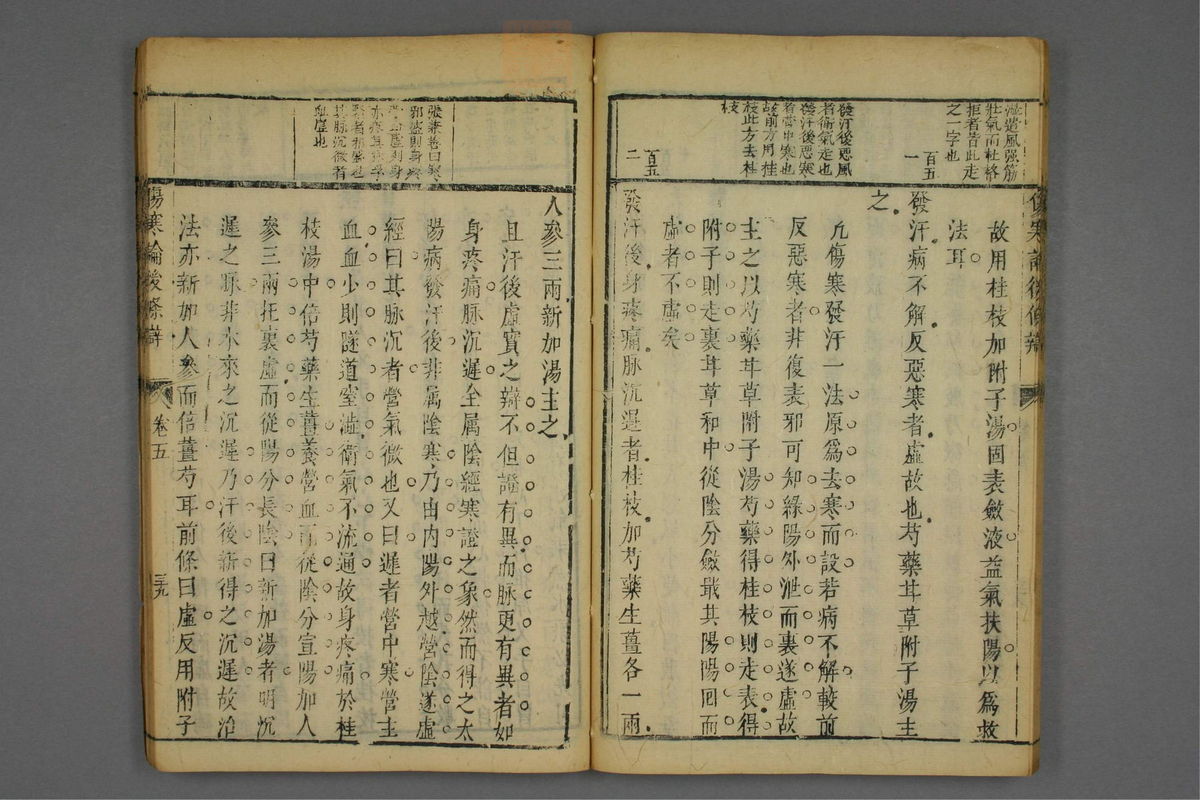 壯氣而杜格
拒者皆此走
之一字也
百五
一
發汗後惡風
者衛氣走也
發汗後惡寒
者營中寒也
故前方用桂
枝此方去桂
枝
百五
二
故用桂枝加附子湯固表斂液益氣扶陽以爲救
法耳
發汗病不解反惡寒者虛故也芍藥甘草附子湯主
之
凡傷寒發汗一法原爲去寒而設若病不解較前
反惡寒者非復表邪可知緣陽外泄而裏遂虛故
主之以芍藥甘草附子湯芍藥得桂枝則走表得
附子則走裏甘草和中從陰分斂戢其陽陽囘而
虛者不虛矣
發汗後身疼痛脉沉遲者桂枝加芍藥生薑各一兩
張兼善曰寒
邪盛則身疼
營血虛則身
亦疼其脉浮
緊者邪盛也
其脉沉微者
血虛也
人參三兩新加湯主之
且汗後虛實之辯不但證有異而脉更有異者如
身疼痛脉沉遲全屬陰經寒證之象然而得之太
陽病發汗後非属陰寒乃由内陽外越營陰遂虛
經曰其脉沉者營氣微也又曰遲者營中寒營主
血血少則隧道窒澁衛氣不流通故身疼痛於桂
枝湯中倍芍藥生薑養營血而從陰分宣陽加人
參三兩托裏虛而從陽分長陰曰新加湯者明沉
遲之脉非本來之沉遲乃汗後新得之沉遲故治
法亦新加人參而倍薑芍耳前條曰虛反用附子
傷寒論後條辯
卷五
三九